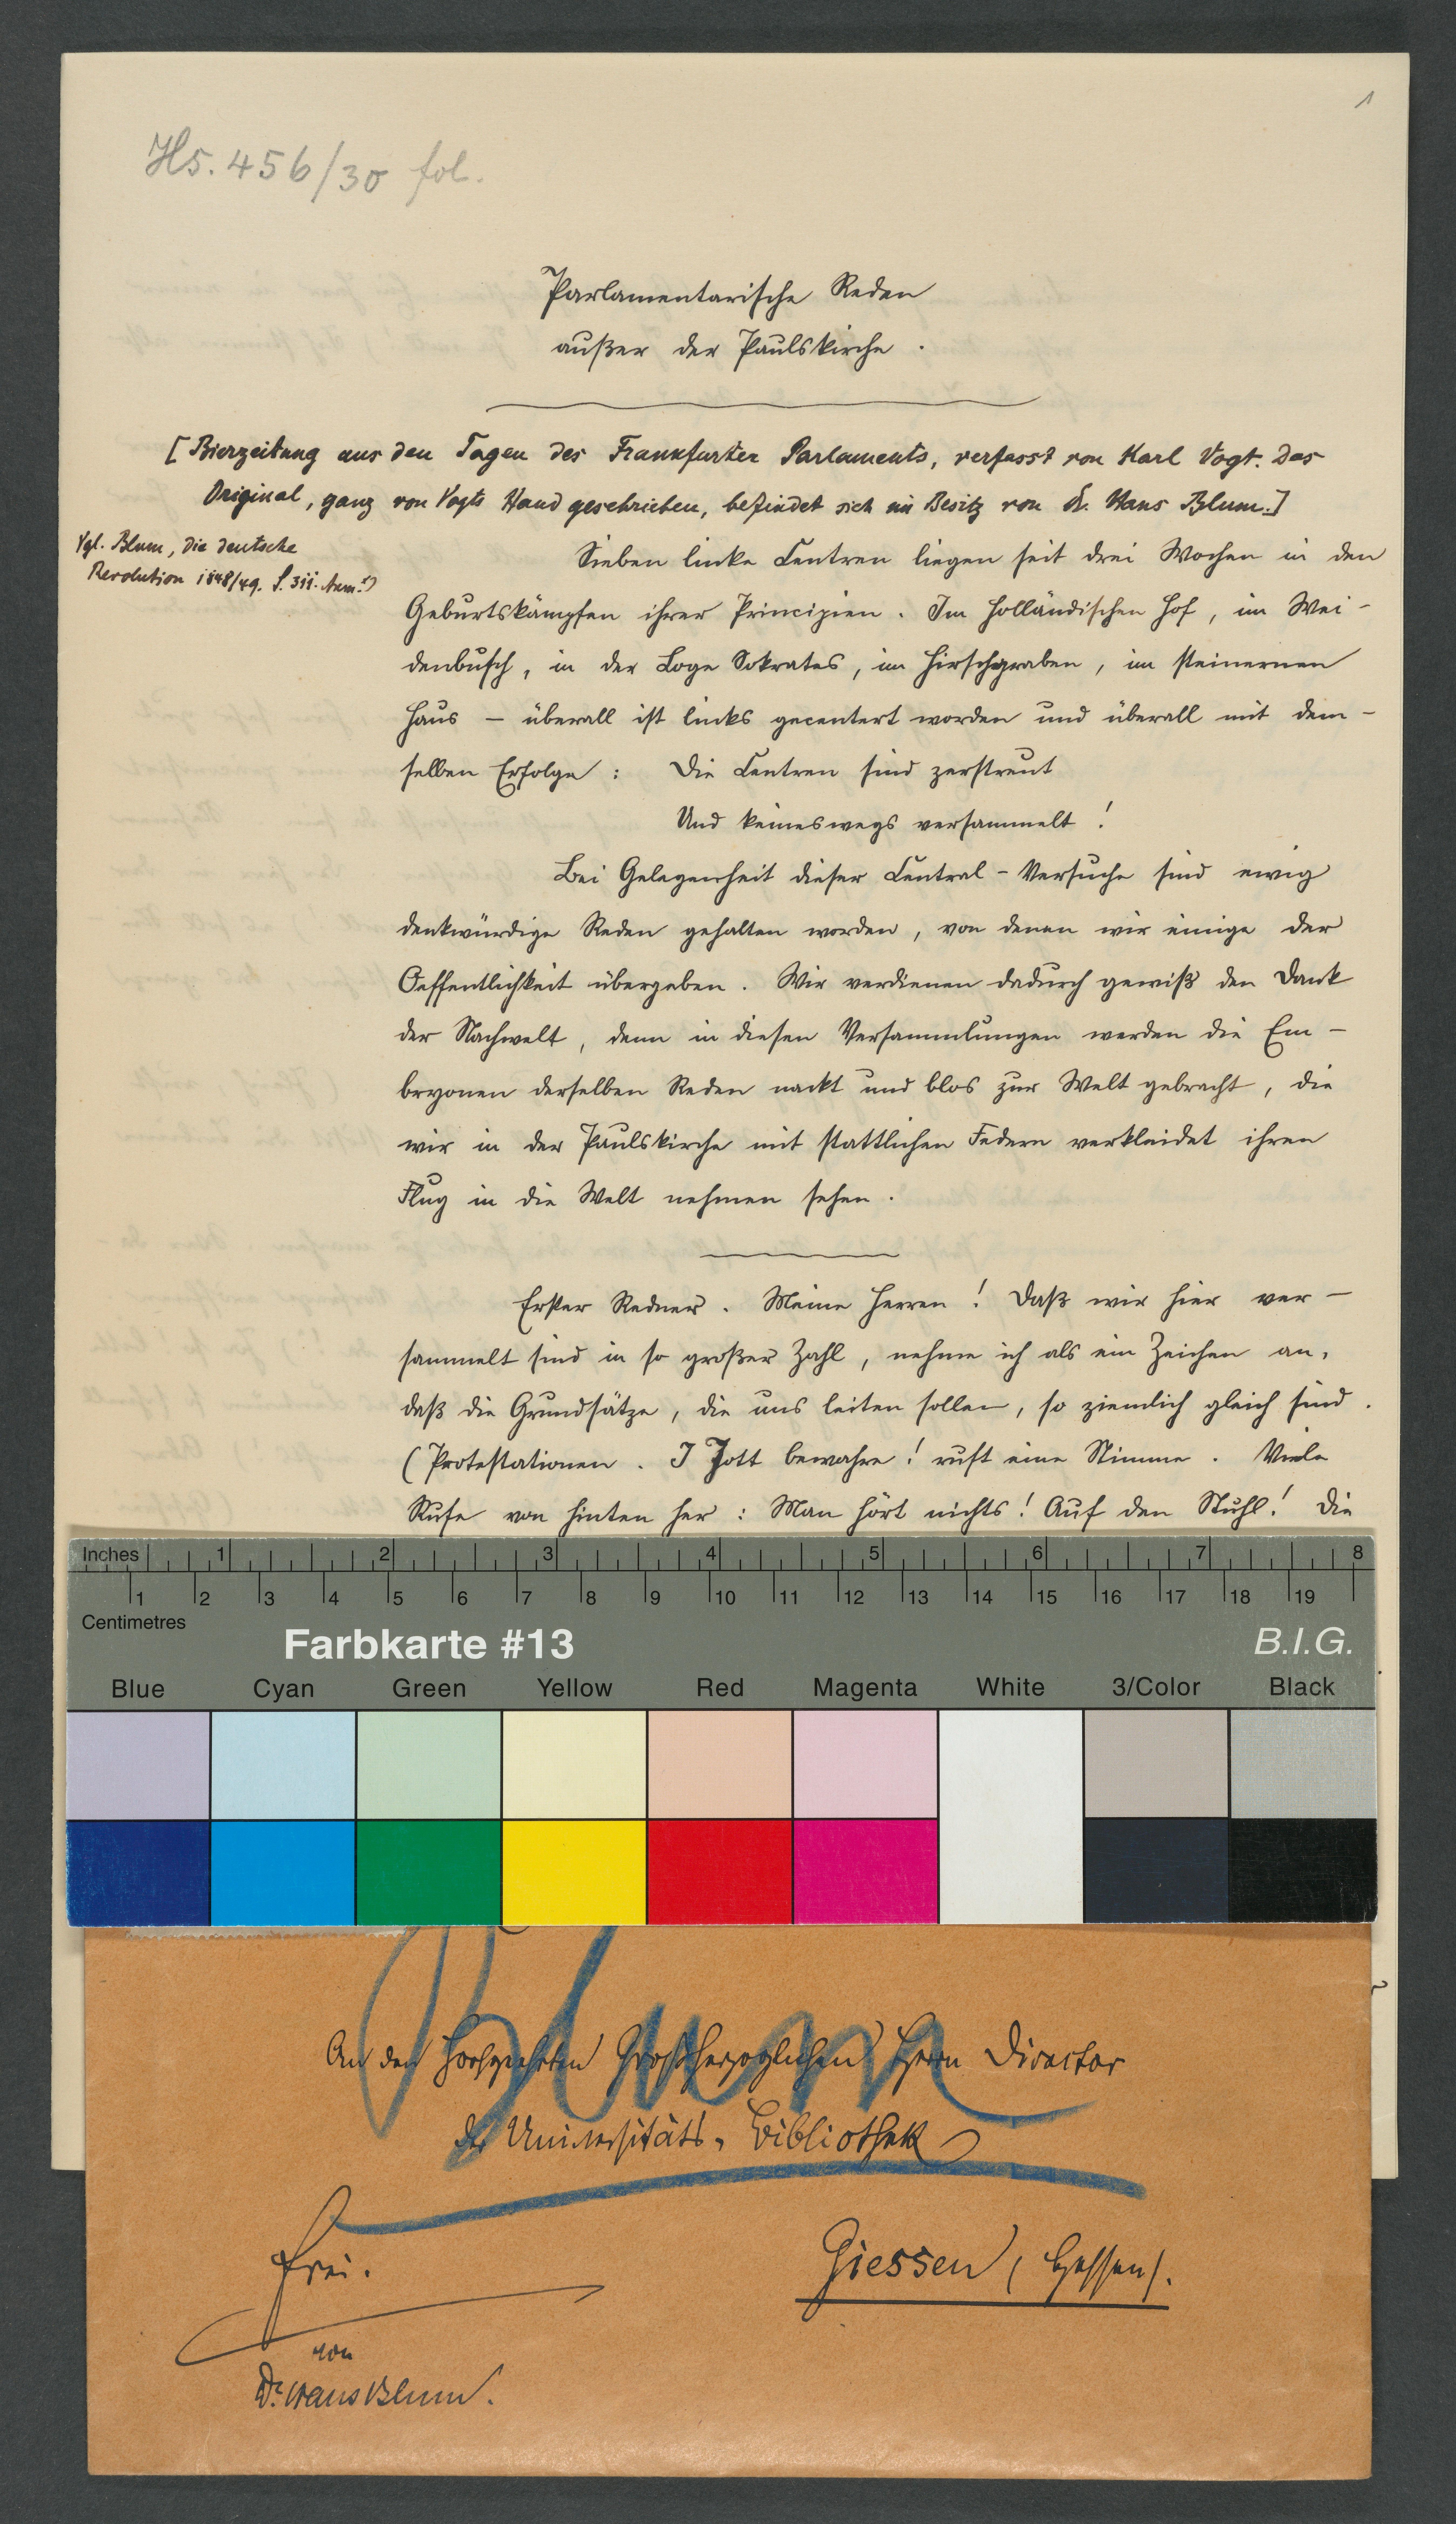 1
Hs. 456/30 fol.
Parlamentarische Reden
außer der Paulskirche.
[Bierzeitung aus den Tagen des Frankfurter Parlaments, verfasst von Karl Vogt. Das
Original, ganz von Vogts Hand geschrieben, befindet sich im Besitz von Dr. Hans Blum.]
Vgl. Blum, die deutsche
Revolution 1848/49. S. 311. Anm. 1)
Sieben linke Centren liegen seit drei Wochen in den
Geburtskämpfen ihrer Principien. Im Holländischen Hof, im Wei-
denbusch, in der Loge Sokrates, im Hirschgraben, im steinernen
Haus – überall ist links gecentert worden und überall mit dem-
selben Erfolge: Die Centren sind zerstreut
Und keineswegs versammelt!
Bei Gelegenheit dieser Central-Versuche sind ewig
denkwürdige Reden gehalten worden, von denen wir einige der
Oeffentlichkeit übergeben. Wir verdienen dadurch gewiß den Dank
der Nachwelt, denn in diesen Versammlungen werden die Em-
bryonen derselben Reden nackt und blos zur Welt gebracht, die
wir in der Paulskirche mit stattlichen Federn verkleidet ihren
Flug in die Welt nehmen sehen.
Erster Redner. Meine Herren! Daß wir hier ver-
sammelt sind in so großer Zahl, nehme ich als ein Zeichen an,
daß die Grundsätze, die uns leiten sollen, so ziemlich gleich sind.
(Protestationen. I Jott bewahre! ruft eine Stimme. Viele
Rufe von hinten her: Man hört nichts! Auf den Stuhl! Die
Inches 1 2 3 4 5 6 7 8
1 2 3 4 5 6 7 8 9 10 11 12 13 14 15 16 17 18 19
Centimetres
Farbkarte #13 B.I.G.
Blue Cyan Green Yellow Red Magenta White 3/Color Black
Blum
An den hochgeehrten Großherzoglichen Herrn Director
der Universitäts-Bibliothek
Giessen (Hessen).
frei.
von
Dr. Hans Blum.